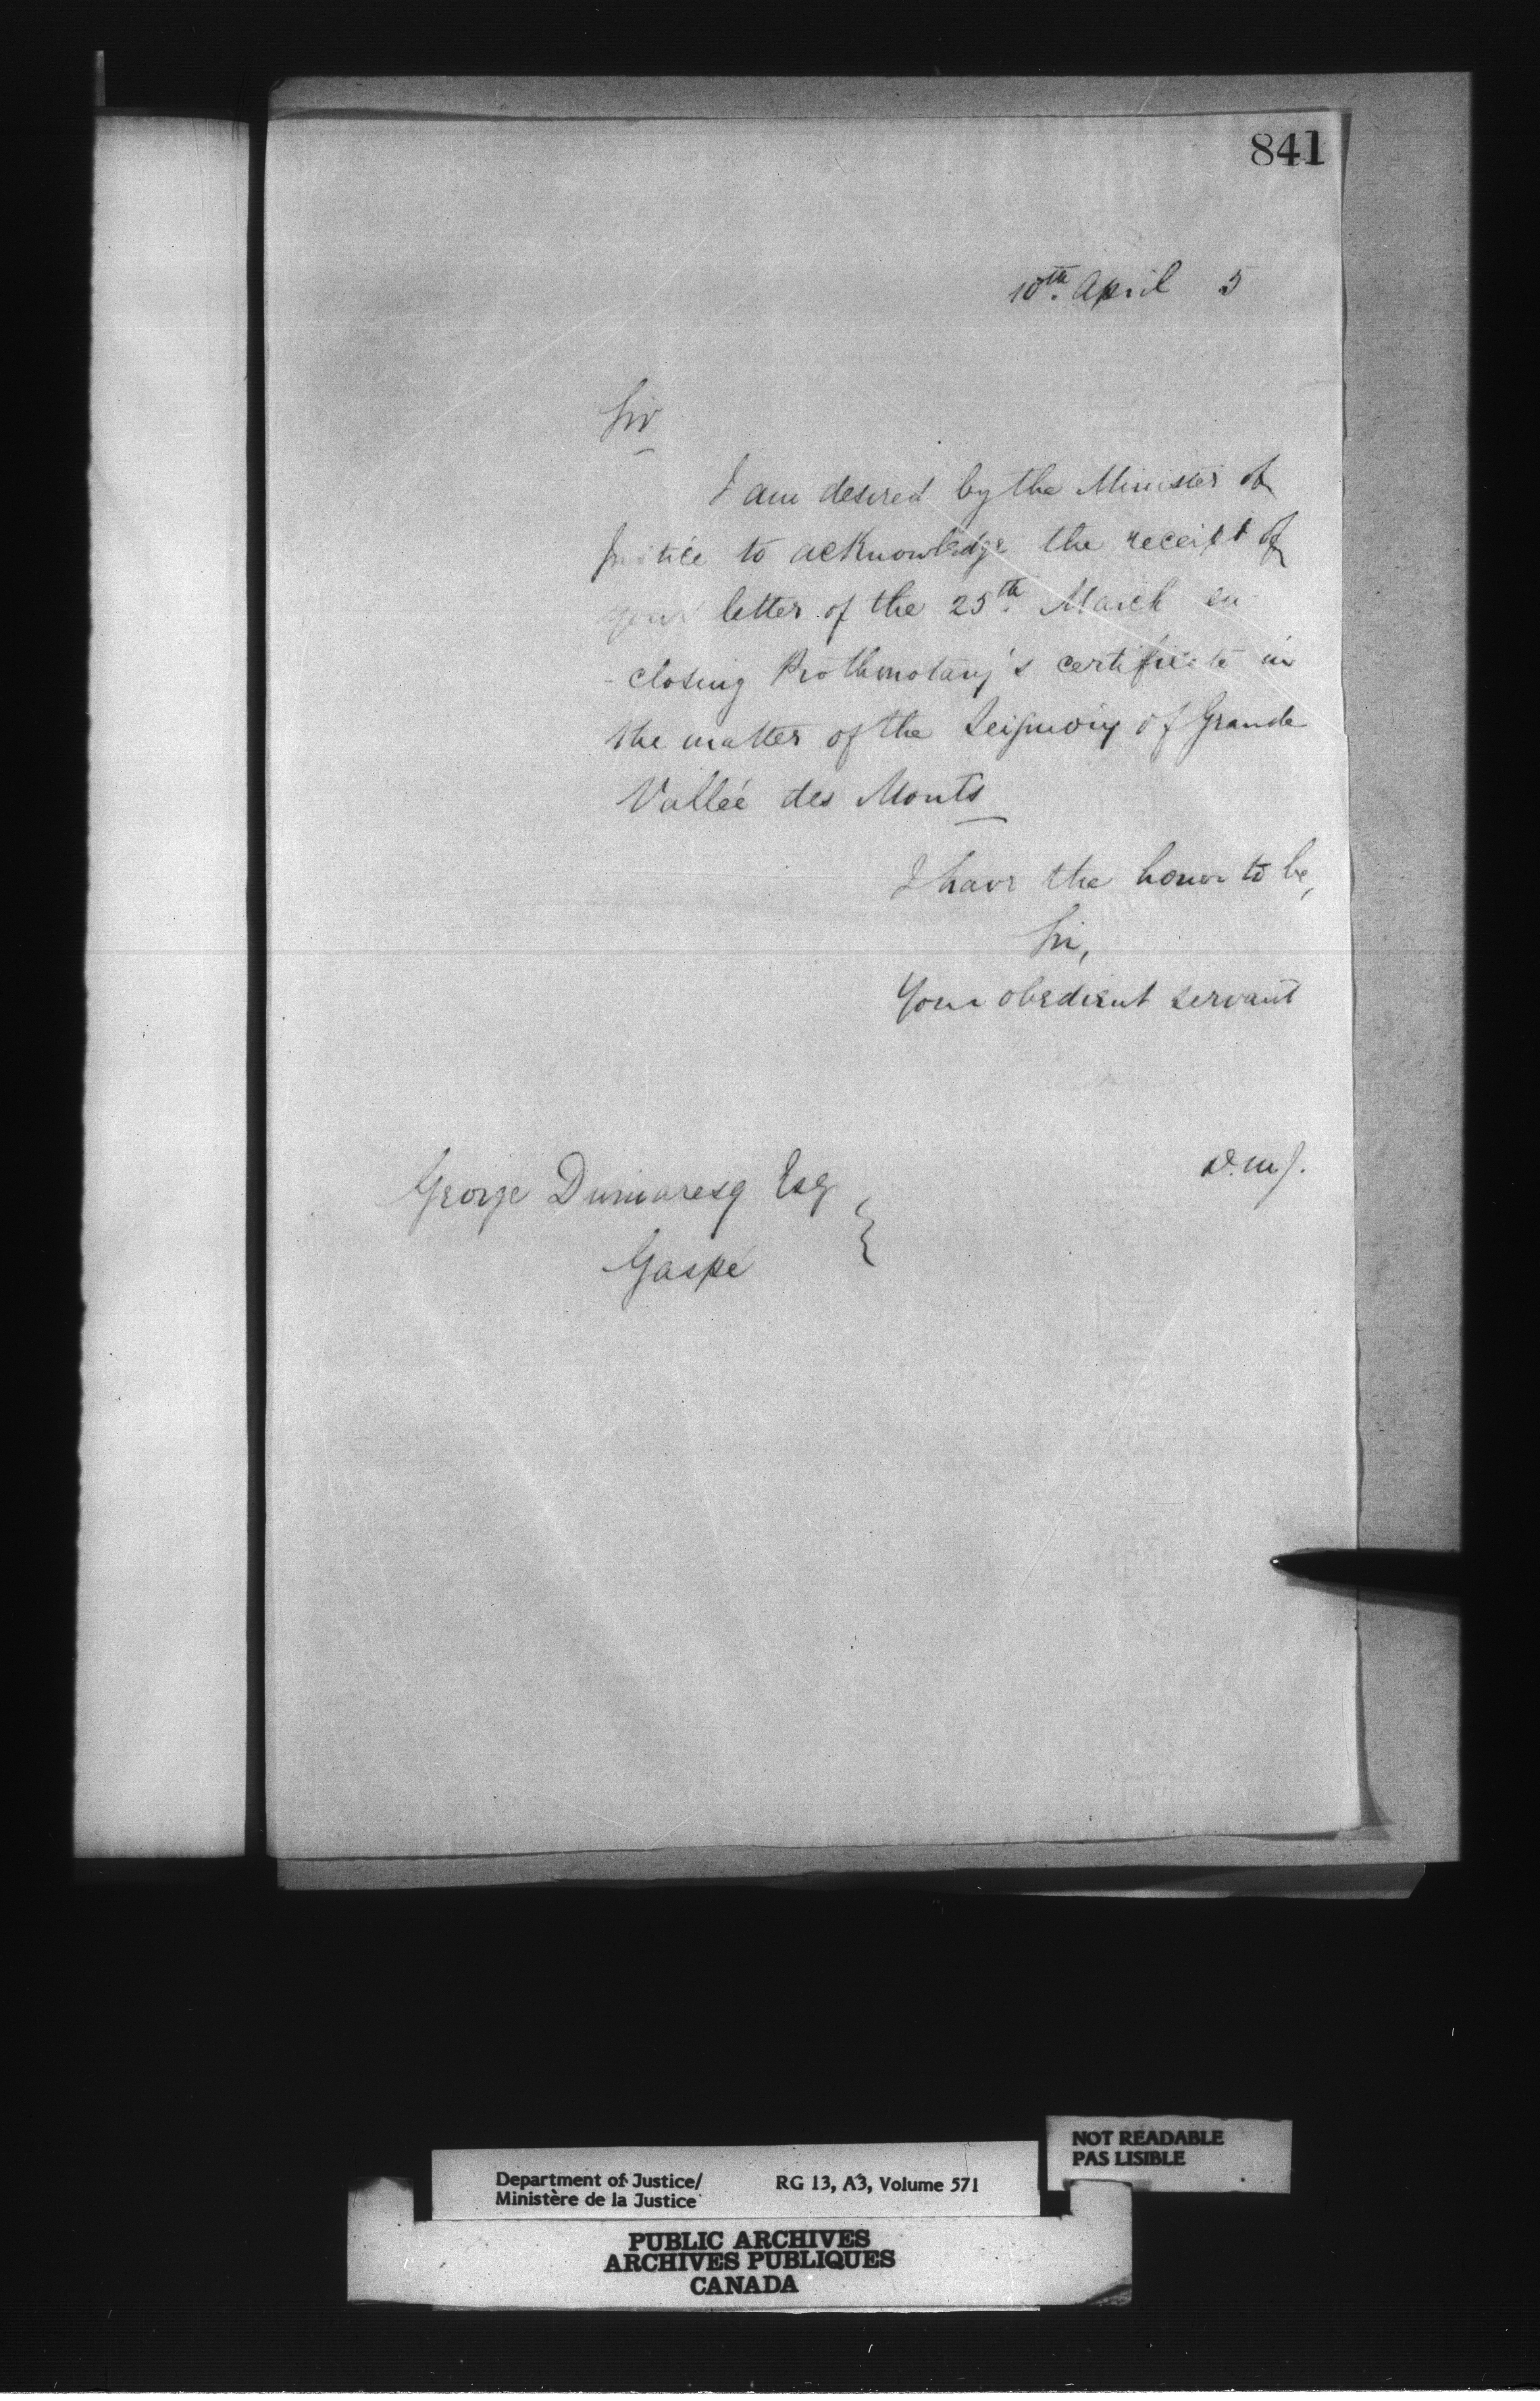 841
10th. April 5
Sir
I am desired by the Minister of
Justice to acknowledge the receipt of
your letter of the 25th. March en
-closing Prothonotary's certificate in
the matter of the Seigniory of Grande
Vallée des Monts
I have the honor to be,
Sir,
Your obedient servant
D.M.J.
George Dumaresq Esq
Gaspé
NOT READABLE
PAS LISIBLE
Department of Justice/ RG 13, A3, Volume 571
Ministère de la Justice
PUBLIC ARCHIVES
ARCHIVES PUBLIQUES
CANADA